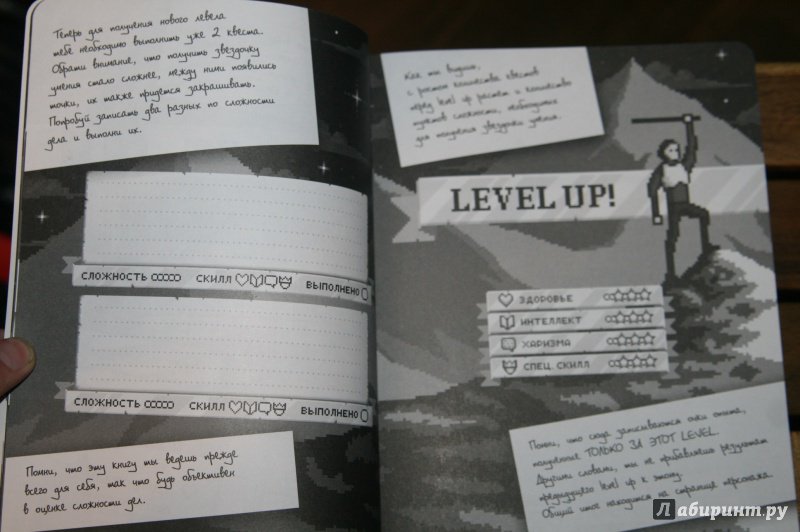 Теперь для получения нового левела
тебе необходимо выполнить уже 2 квеста.
Обрати внимание, что получить звездочку
умения стало сложнее, между ними появились
точки, их также придется закрашивать.
Попробуй записать два разных по сложности
дела и выполни их.
СЛОЖНОСТЬ СКИЛЛ ВЫПОЛНЕНО
СЛОЖНОСТЬ СКИЛЛ ВЫПОЛНЕНО
Помни, что эту книгу ты ведешь прежде
всего для себя, так что будь объективен
в оценке сложности дел.
Как ты видишь,
с ростом количества квестов
перед level up растет и количество
пунктов сложности, необходимых
для получения звездочки умения.
LEVEL UP!
ЗДОРОВЬЕ
ИНТЕЛЛЕКТ
ХАРИЗМА
СПЕЦ. СКИЛЛ
Помни, что сюда записываются очки опыта,
полученные ТОЛЬКО ЗА ЭТОТ LEVEL.
Другими словами, ты не прибавляешь результат
предыдущего level up к этому.
Общий итог находится на странице персонажа.
Лабиринт.ру